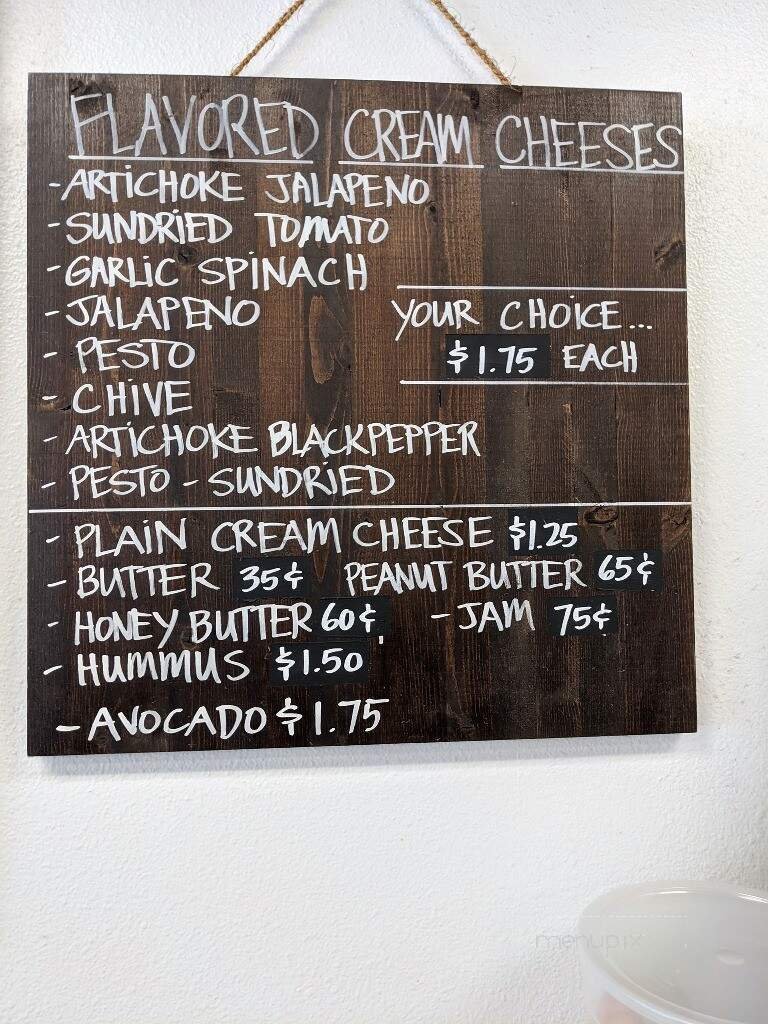 FLAVORED CREAM CHEESES
- ARTICHOKE JALAPENO
- SUNDRIED TOMATO
- GARLIC SPINACH
- JALAPENO
YOUR CHOICE...
- PESTO
$1.75 EACH
- CHIVE
- ARTICHOKE BLACKPEPPER
- PESTO - SUNDRIED
- PLAIN CREAM CHEESE $1.25
- BUTTER 35¢ PEANUT BUTTER 65¢
- HONEY BUTTER 60¢ - JAM 75¢
- HUMMUS $1.50
- AVOCADO $1.75
menupix